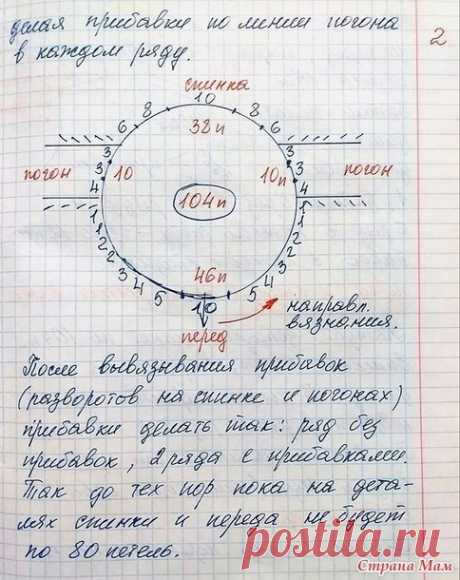 делая прибавки по линии погона
в каждом ряду.
2
спинка
6 8 10 8 6
38п
3 3
погон 3 10 10п 3 погон
4 104п 4
1 1
1 1
2 2
2 2
3 46п 3
4 4
5 10 5
перед
направл.
вязания.
После вывязывания прибавок
(разворотов на спинке и погонах)
прибавки делать так: ряд без
прибавок, 2 ряда с прибавками.
Так до тех пор пока на дета-
лях спинки и переда не будет
по 80 петель.
postila.ru
Страна Мам